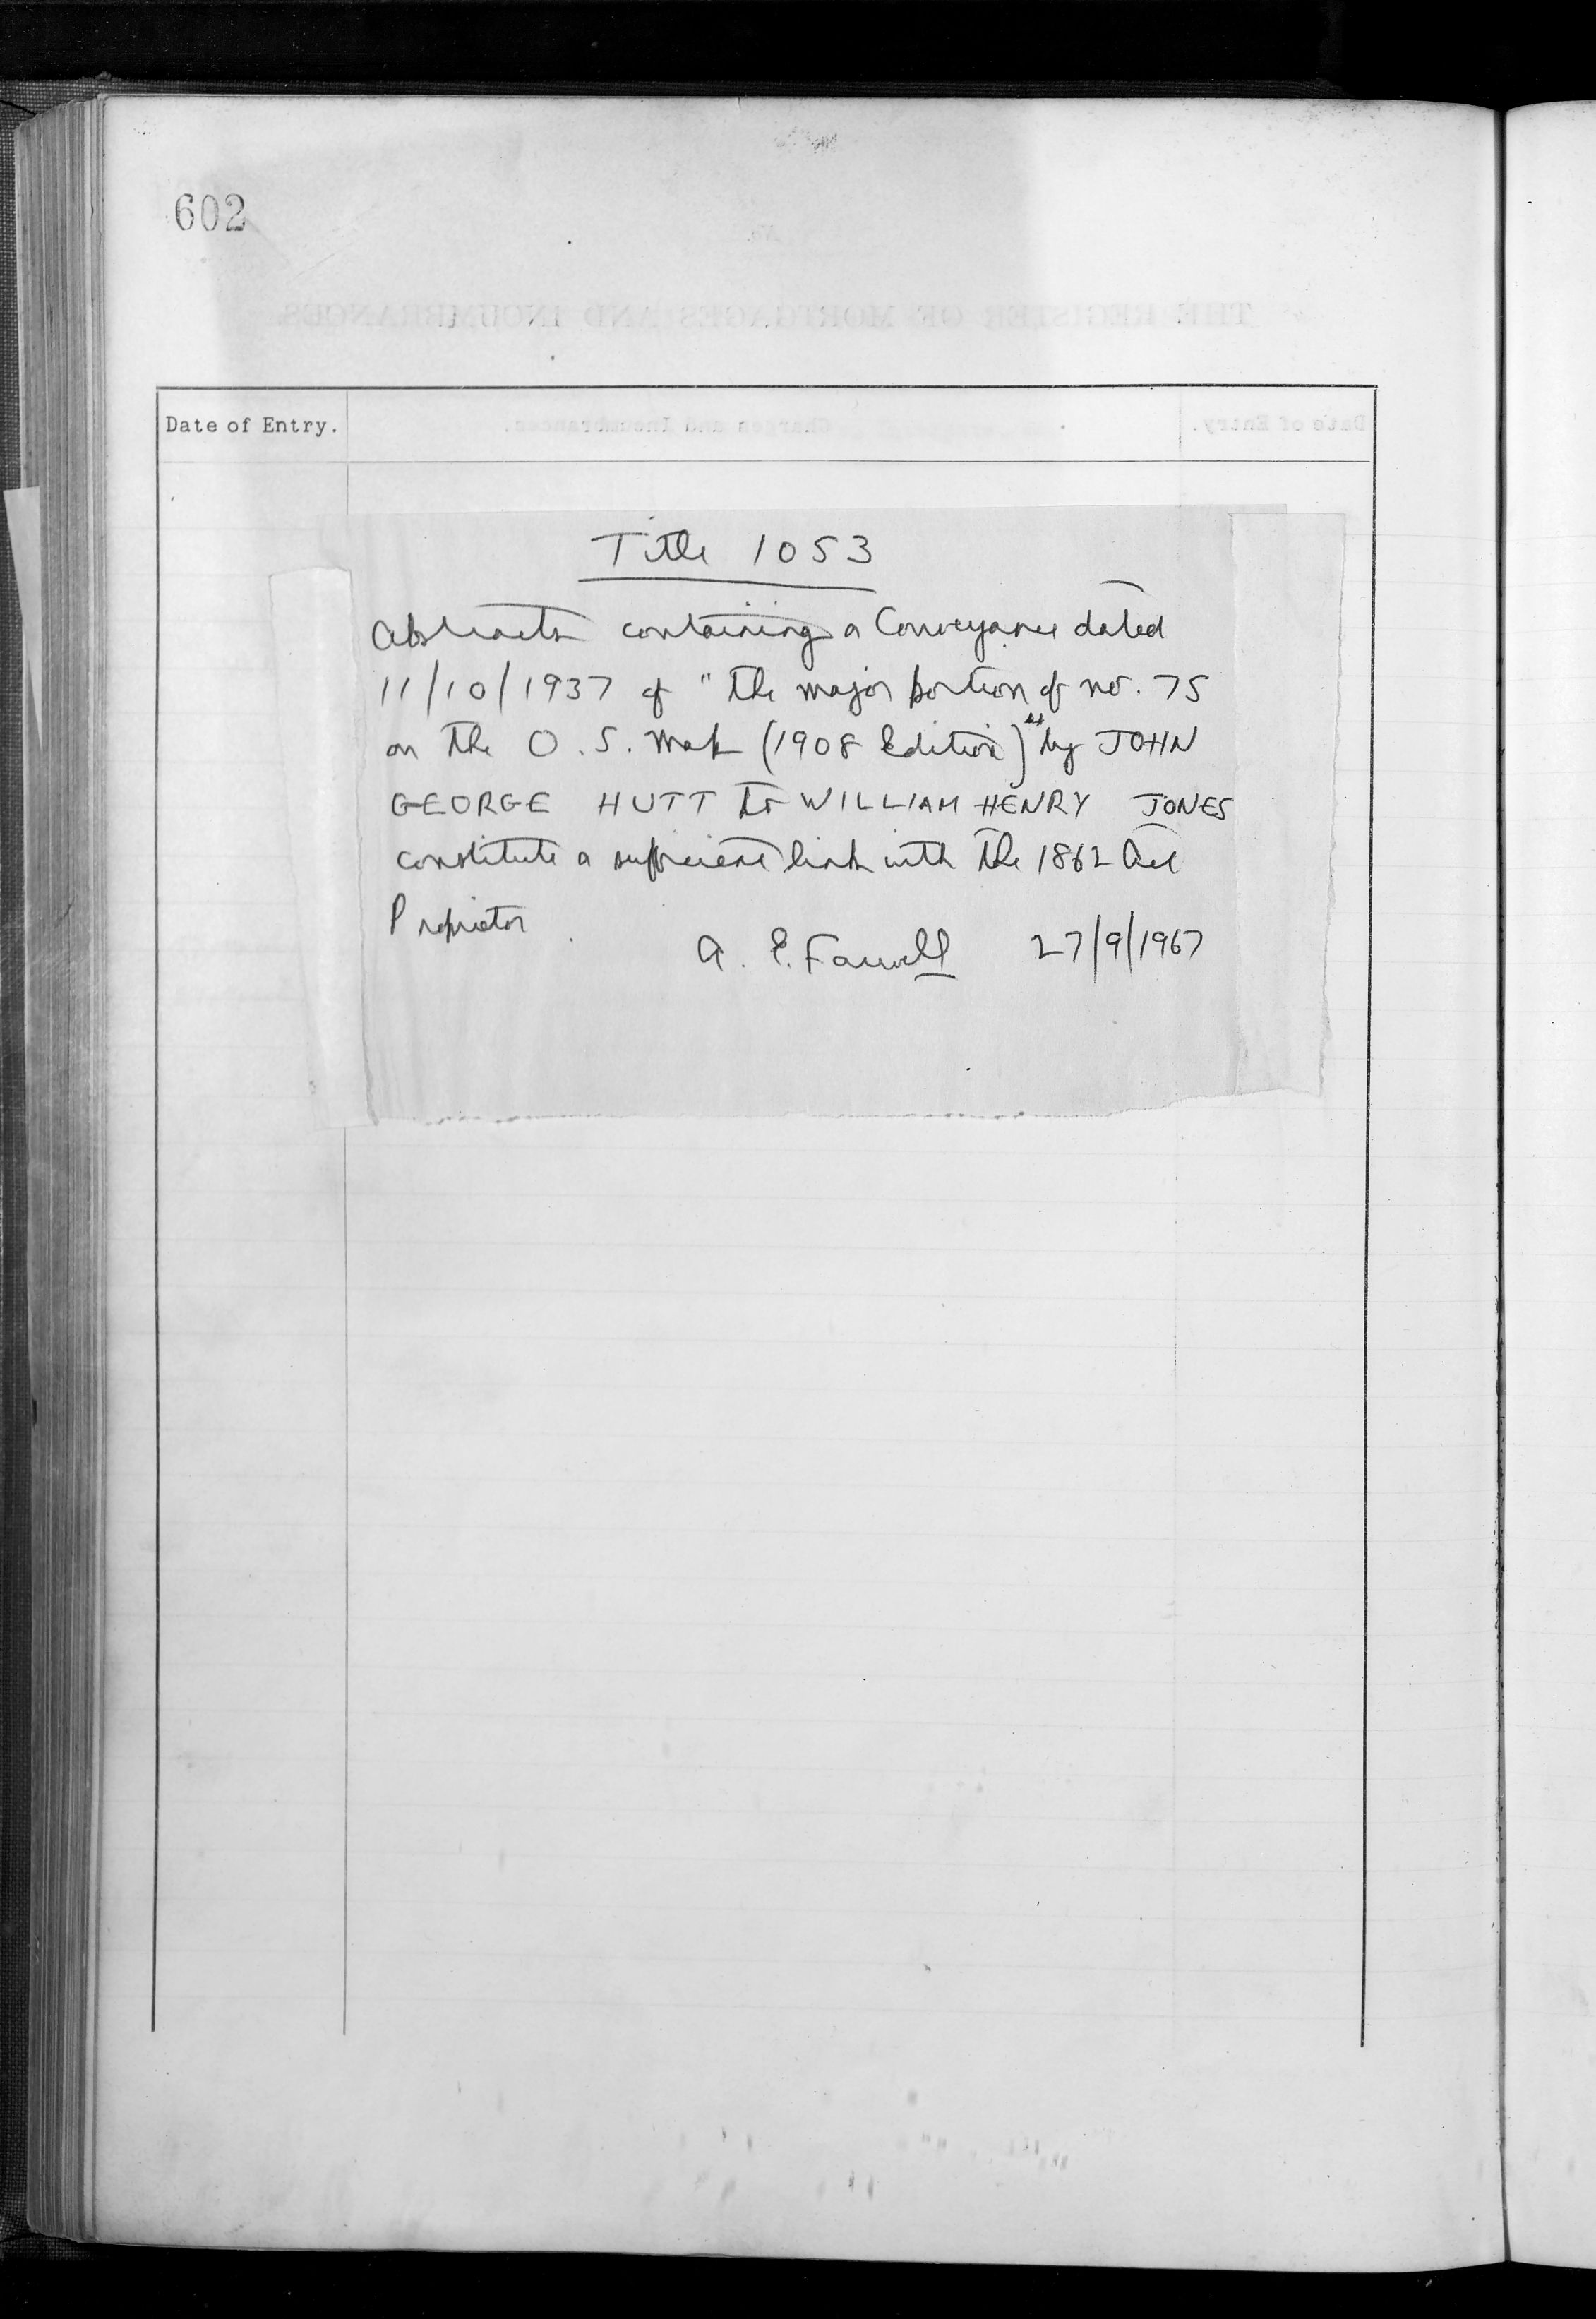 602
Date of Entry.
Title 1053
Abstracts containing a Conveyance dated
11/10/1937 of "the major portion of no. 75
on the O.S. Map (1908 Edition)" by JOHN
GEORGE HUTT to WILLIAM HENRY JONES
constitute a sufficient link with the 1862 Act
Proprietor
A. E. Farwell 27/9/1967